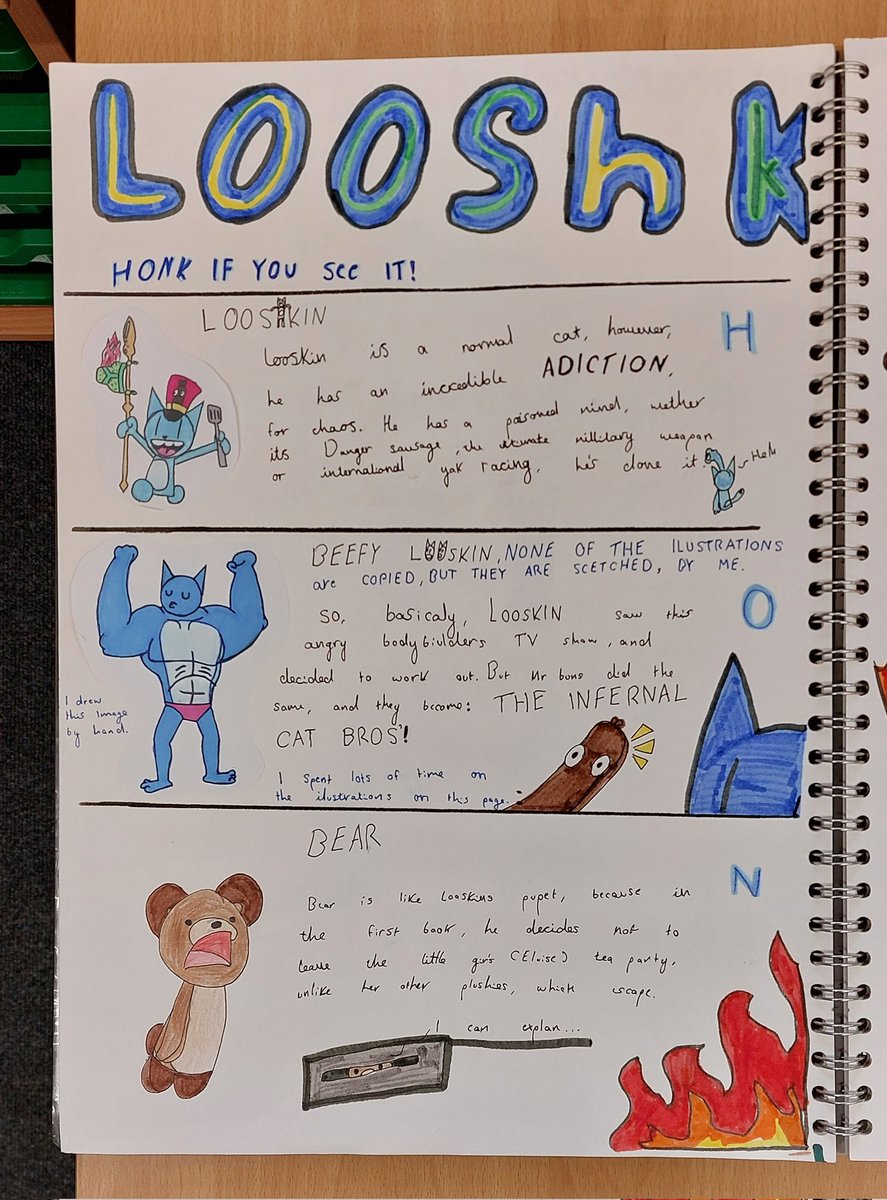 LOOShk
HONK IF YOU See IT!
LOOSKIN
H
Looskin is a normal cat, however,
he has an incredible ADICTION,
for chaos. He has a poisoned mind, wether
its Danger sausage, the utimate millitary weapon
or international yak racing, he's done it.
Heh
BEEFY LOOSKIN, NONE OF THE ILUSTRATIONS
are COPIED, BUT THEY ARE SCETCHED, BY ME.
O
So, basicaly, LOOSKIN saw this
angry bodybiulders TV show, and
decided to work out. But Mr buns did the
same, and they become: THE INFERNAL
CAT BROS'!
I drew
this image
by hand.
I spent lots of time on
the ilustrations on this page.
BEAR
N
Bear is like Looskins pupet, because in
the first book, he decides not to
leave the little girs (Eloise) tea party,
unlike her other plushies, which escape.
I can explan...